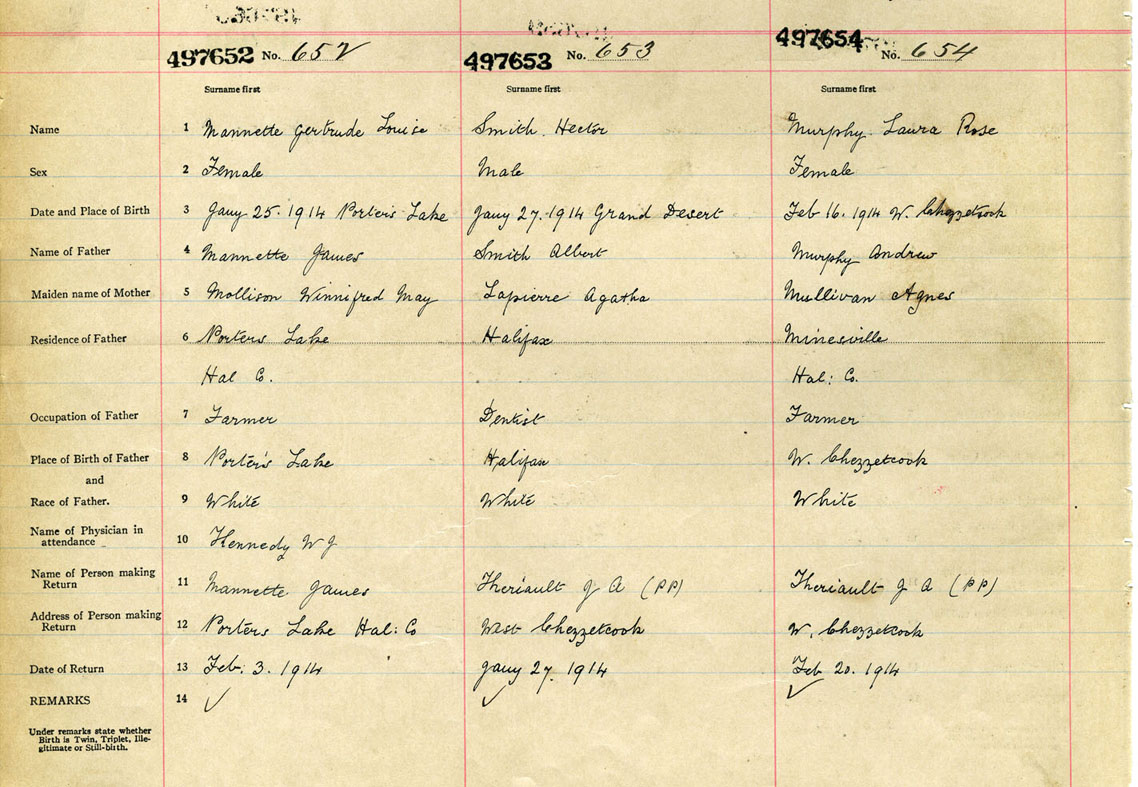 497652 No. 652 497653 No. 653 497654 No. 654
Surname first Surname first Surname first
Name 1 Mannette Gertrude Louise Smith Hector Murphy Laura Rose
Sex 2 Female Male Female
Date and Place of Birth 3 Jany 25. 1914 Porter's Lake Jany 27. 1914 Grand Desert Feb 16. 1914 W. Chezzetcook
Name of Father 4 Mannette James Smith Albert Murphy Andrew
Maiden name of Mother 5 Mollison Winnifred May Lapierre Agatha Mullivan Agnes
Residence of Father 6 Porters Lake Halifax Minesville
Hal Co. Hal: Co.
Occupation of Father 7 Farmer Dentist Farmer
Place of Birth of Father 8 Porter's Lake Halifax W. Chezzetcook
and
Race of Father. 9 White White White
Name of Physician in
attendance 10 Kennedy W J
Name of Person making
Return 11 Mannette James Theriault J A (PP) Theriault J A (PP)
Address of Person making
Return 12 Porters Lake Hal: Co West Chezzetcook W. Chezzetcook
Date of Return 13 Feb. 3. 1914 Jany 27. 1914 Feb 20. 1914
REMARKS 14 ✓ ✓ ✓
Under remarks state whether
Birth is Twin, Triplet, Ille-
gitimate or Still-birth.